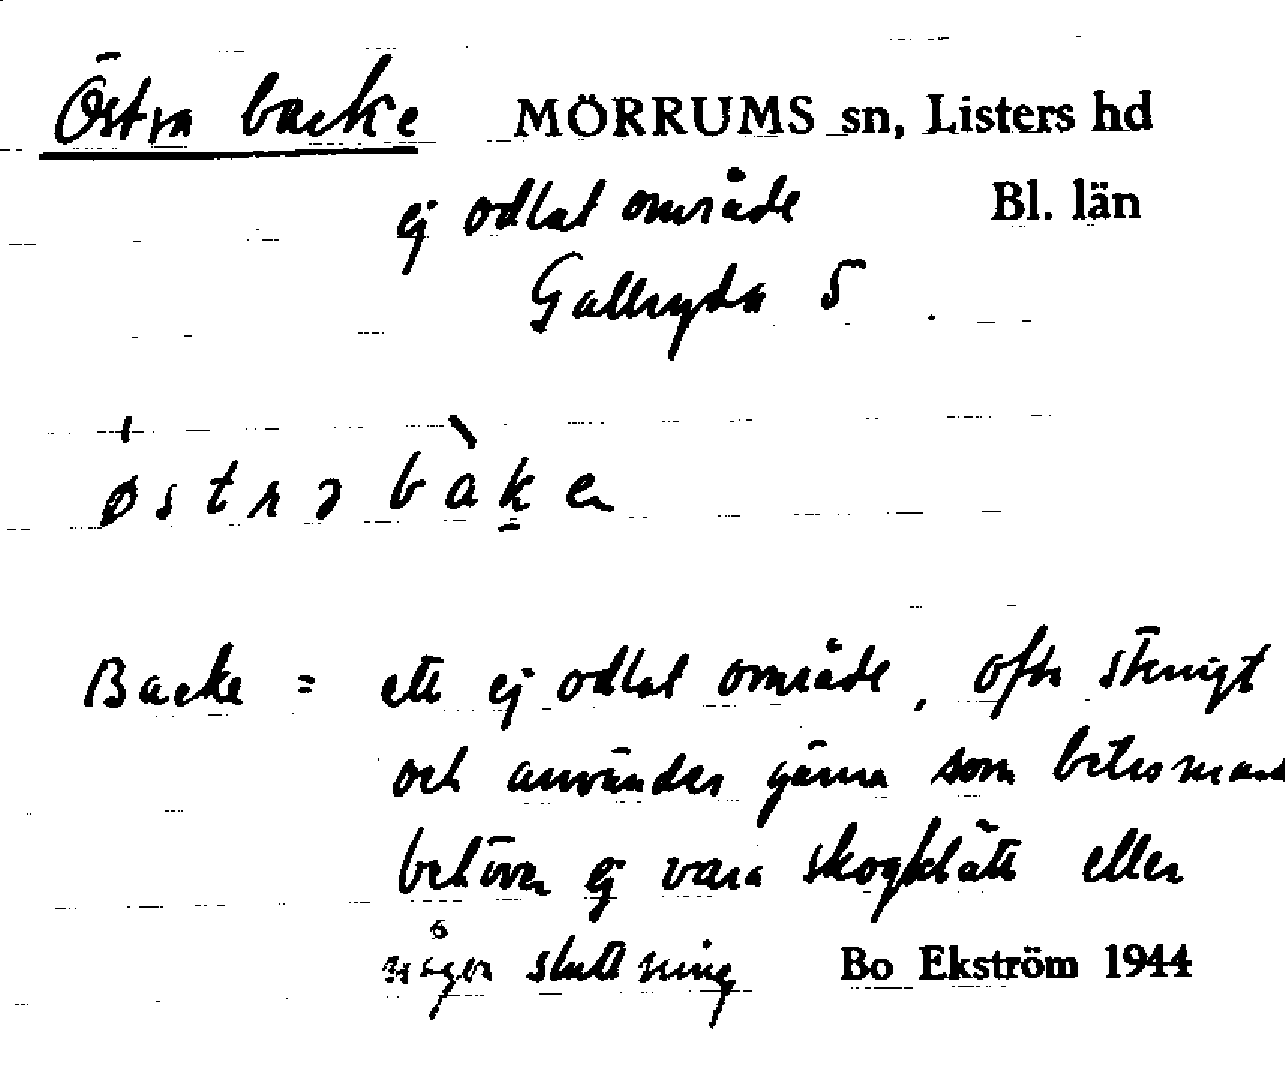 Östra backe MÖRRUMS sn, Listers hd
ej odlat område Bl. län
Gallryda 5
østrə baken
Backe = ett ej odlat område, ofta stenigt
och användes gärna som betesmark
behöver ej vara skogklätt eller
någon sluttning Bo Ekström 1944